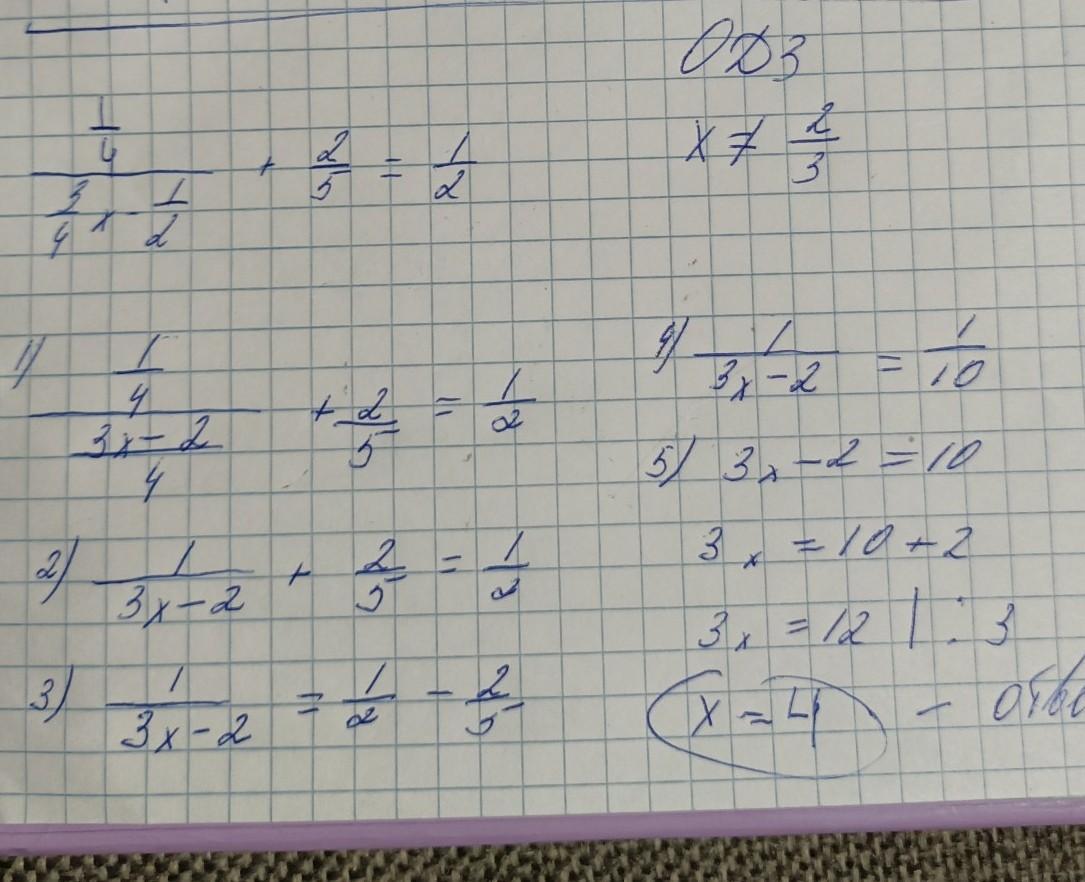 ОДЗ
1/4 / (3/4 x - 1/2) + 2/5 = 1/2
x ≠ 2/3
1) 1/4 / ((3x - 2)/4) + 2/5 = 1/2
2) 1/(3x - 2) + 2/5 = 1/2
3) 1/(3x - 2) = 1/2 - 2/5
4) 1/(3x - 2) = 1/10
5) 3x - 2 = 10
3x = 10 + 2
3x = 12 | : 3
x = 4 -